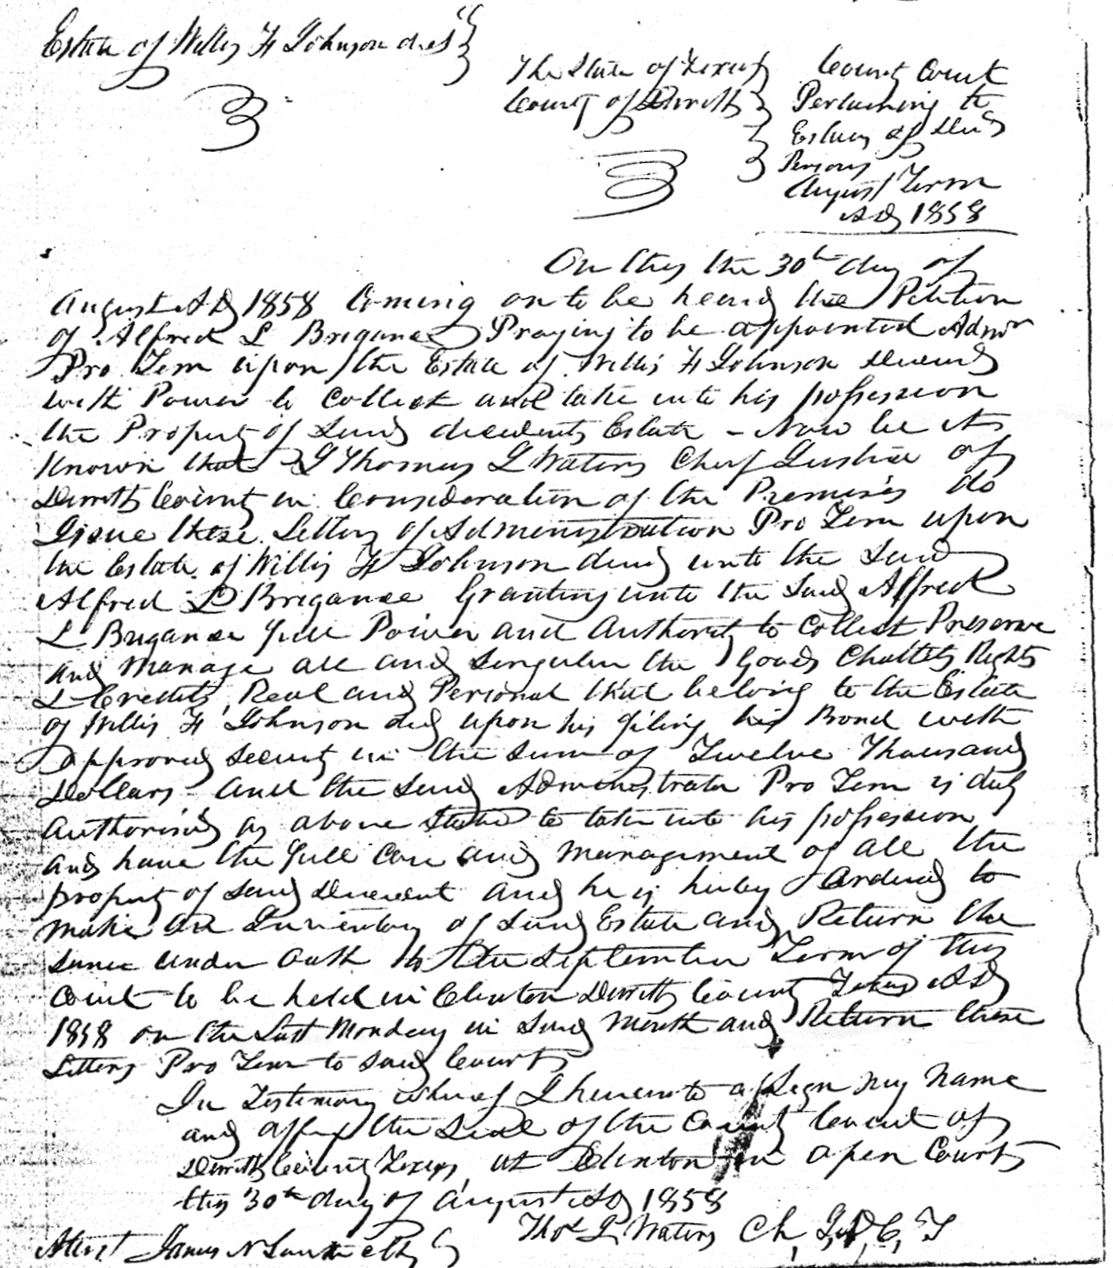 Estate of Willis H Johnson decd
The State of Texas
County of Dewitt
County Court
Pertaining to
Estates of Decd
Persons
August Term
AD 1858
On this the 30th day of
August AD 1858 Coming on to be heard the Petition
of Alfred L Brigance Praying to be appointed Admr
Pro Tem upon the Estate of Willis H Johnson Deceasd
with Power to Collect and take into his possession
the Property of Said decedents Estate - Now be it
Known that I Thomas L Waters Chief Justice of
Dewitt County in Consideration of the Premises do
Issue these Letters of Administration Pro Tem upon
the Estate of Willis H Johnson decd unto the Said
Alfred L Brigance Granting unto the Said Alfred
L Brigance full Power and Authority to Collect Preserve
and Manage all and Singular the Goods Chattels Rights
& Credits, Real and Personal that belong to the Estate
of Willis H Johnson decd upon his filing his Bond with
approved Security in the Sum of Twelve Thousand
Dollars and the Said Administrator Pro Tem is duly
Authorised as above Stated to take into his possession
and have the full Care and Management of all the
property of Said Decedent and he is hereby Ordered to
Make an Inventory of Said Estate and Return the
Same under Oath to the September Term of this
Court to be held in Clinton Dewitt County Texas AD
1858 on the Last Monday in Said Month and Return these
Letters Pro Tem to Said Court
In Testimony whereof I hereunto assign my Name
and affix the Seal of the County Court of
Dewitt County Texas at Clinton in open Court
this 30th day of August AD 1858
Thos L Waters Ch, J, D, C, T
Attest James N Clk